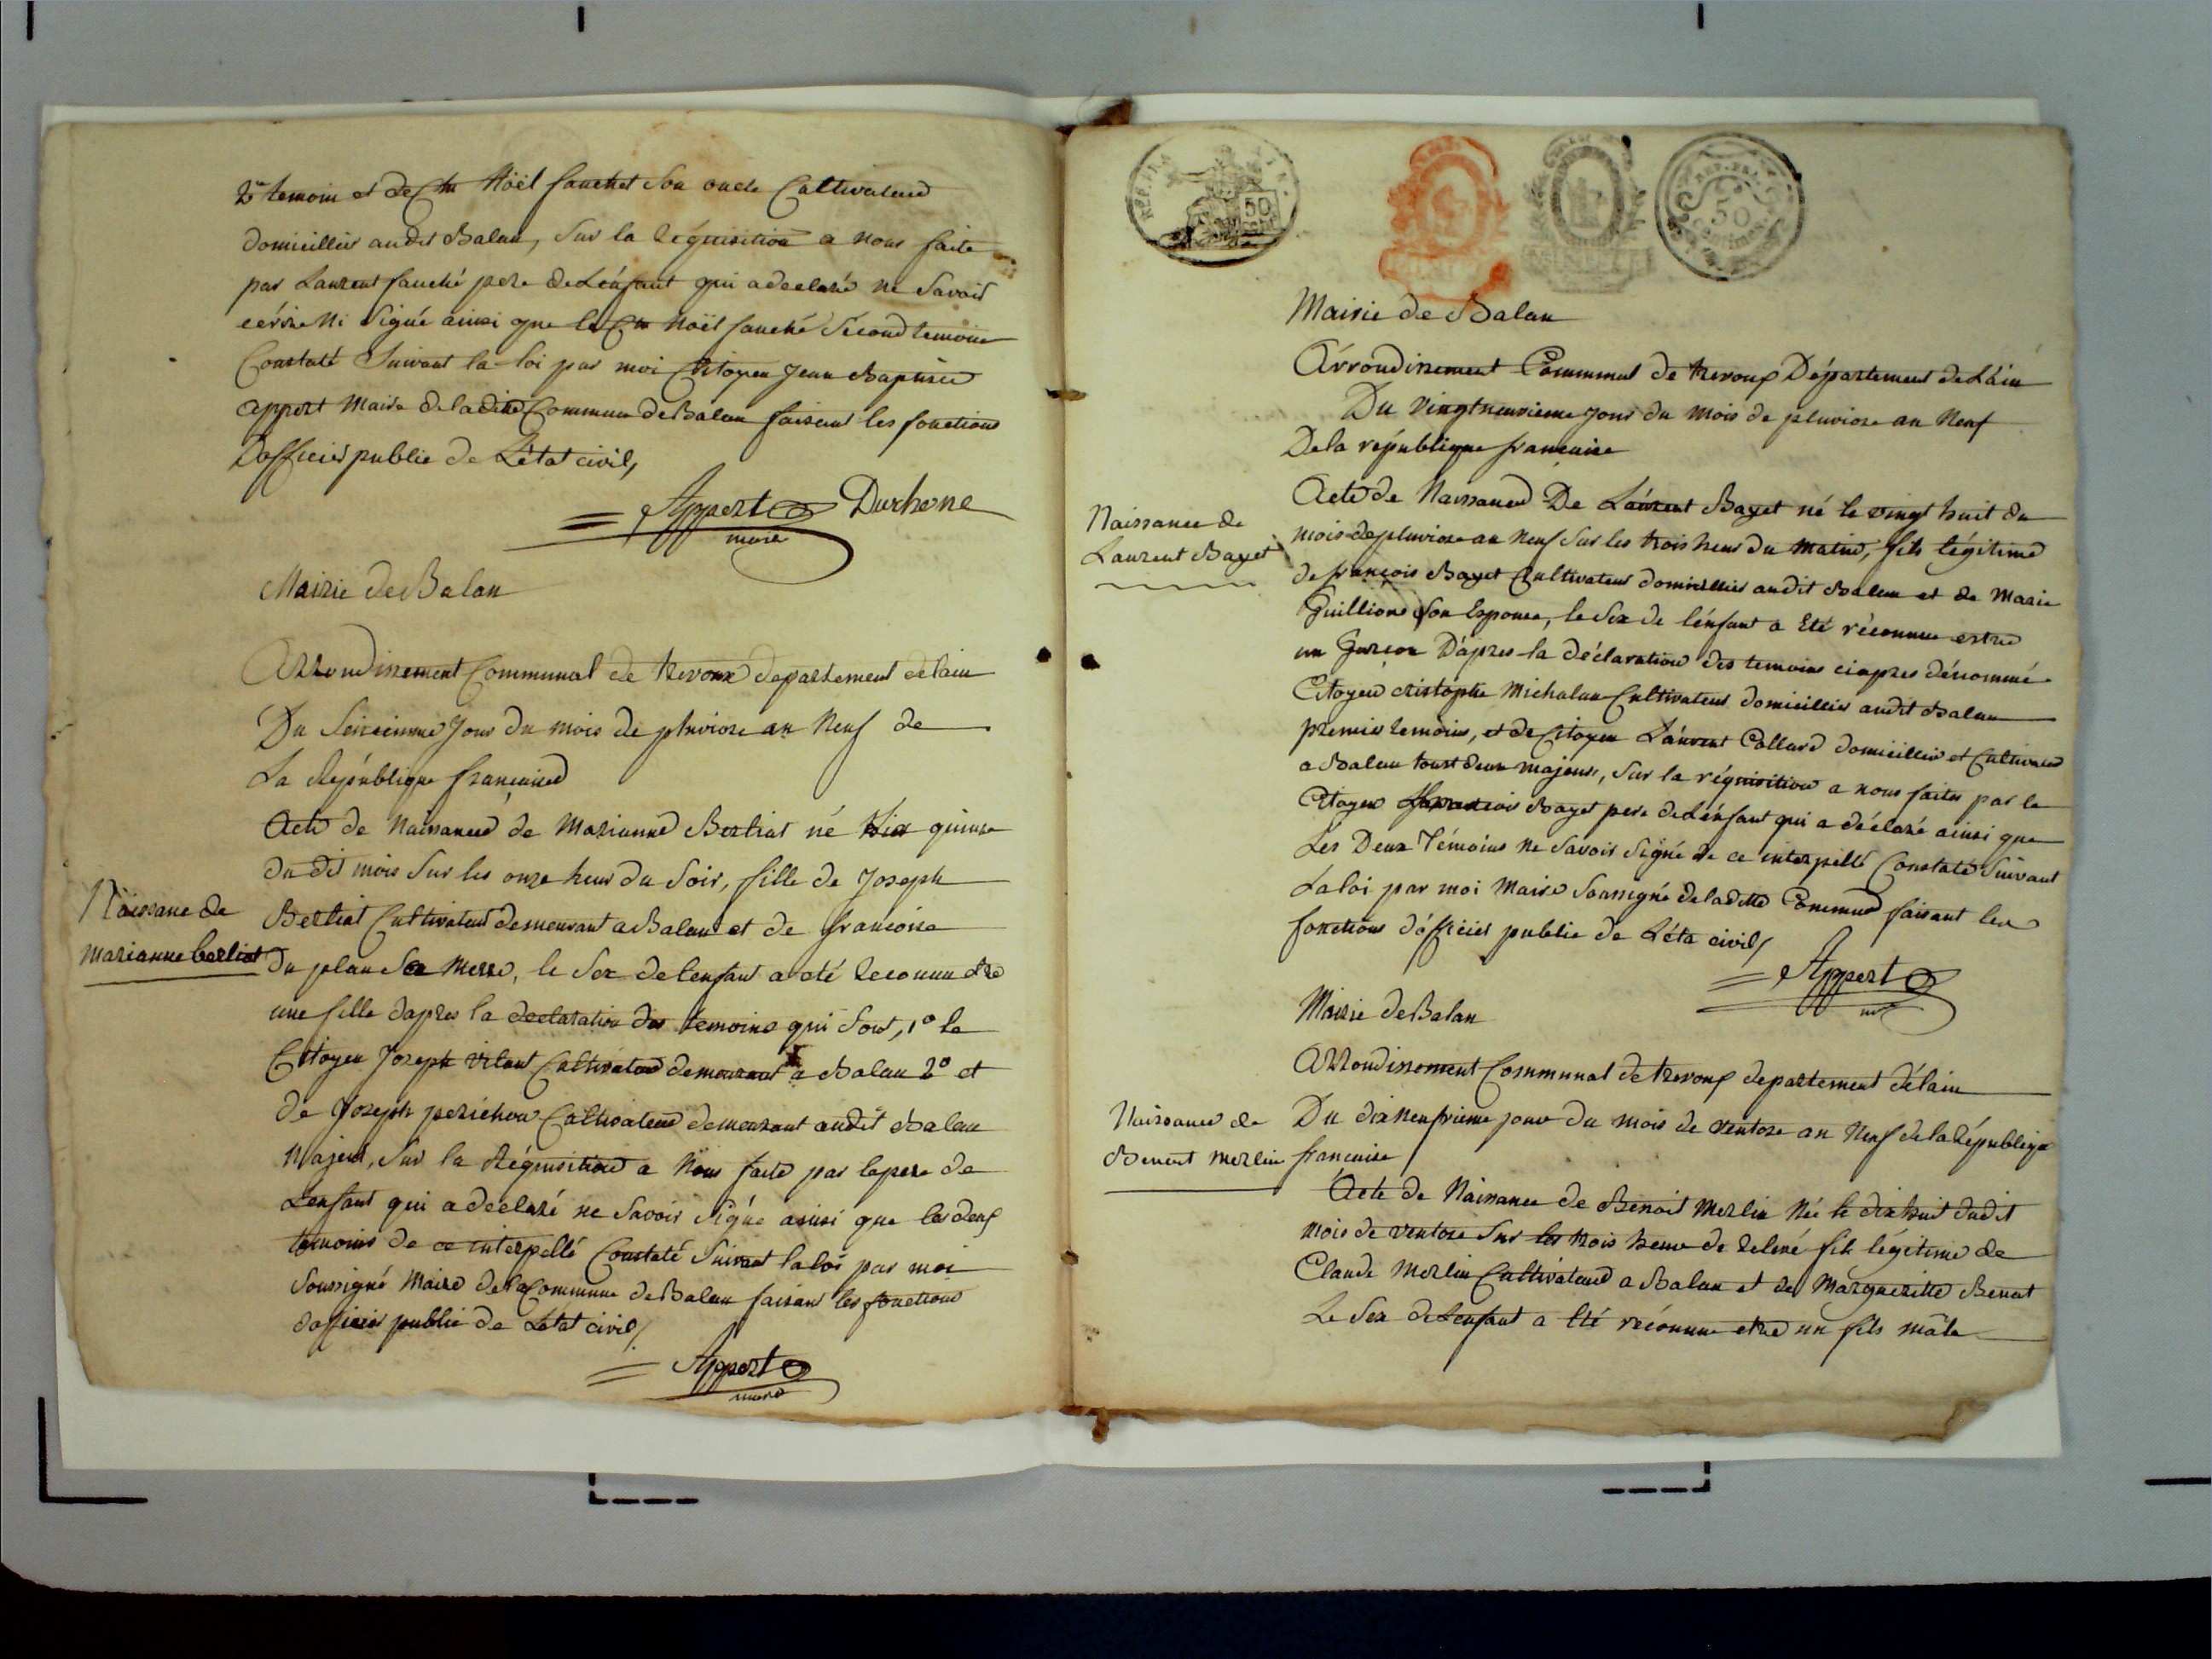 2e temoin et de Ctn Nöël fauchet son oncle Cultivateur
domicillier audit Balan, Sur la requisition a nous faite
par Laurent fauché pere de Lénfant qui a declaré ne Savoir
écrire Ni Signé ainsi que le Ctn Noël fauché Sécond temoin
Constaté Suivant la loi par moi Citoyen Jean Baptiste
appert Maire de ladite Commune de Balan faisant les fonctions
Dofficier public de L'état civil,
Appert Durhone
maire
Mairie de Balan
Arrondissement Communal de trevoux departement de lain
Du Seizieme Jour du mois de pluviose an Neuf de
La République francaise
Acte de Naissance de Marianne Berliat né hier quinze
du dit mois Sur les onze heur du Soir, fille de Joseph
Naissane de
Marianne berliat
Berliat Cultivateur demeurant a Balan et de francoise
Du plan Sa Merre, le Sex de lenfant a été Reconnu etre
une fille dapres la declaration des temoins qui Sont, 1º le
Citoyen Joseph vitant Cultivateur demeurant a Balan 2º et
de Joseph perichon Cultivateur demeurant audit Balan
Majeur, Sur la Réquisition a Nous faite par le pere de
Lenfant qui a declaré ne Savoir Signé ainsi que les deux
temoins de ce interpellé Constaté Suivant la loi par moi
Soussigné Maire de la Commune de Balan faisant les fonctions
dofficier public de Létat civil,
Appert
maire
REP. FRA
50
REP. FRA.
50
Centimes
Mairie de Balan
Arrondissement Communal de trevoux Département de Láin
Du Vingtneuvieme jour du mois de pluviose an Neuf
De la république francaise
Naissance de
Laurent Bayet
Acte de Naissance De Laúrent Bayet né le vingt huit du
mois de pluviose an Neuf Sur les trois heur du matin, fils légitime
de françois Bayet Cultivateur domicillier audit Balan et de Marie
Guillione Son Epouse, le Sex de lénfant a Eté réconnue estre
un Garcon D'apres la déclaration des temoins ciapres dénommé
Citoyen cristophe Michalan Cultivateur domicillier audit Balan
premier temoins, et de Citoyen Láurent Collard domicillier et Cultivateur
a Balan toust deux majeurs, Sur la réquisition a nous faites par le
Citoyen francois Bayet pere de Lénfant qui a déclaré ainsi que
Lés Deux Témoins ne Savoir Signé de ce interpellé Constaté Suivant
La loi par moi Maire Soussigné de ladite Commune faisant les
fonctions dófficier public de Léta civil,
Appert
mr
Mairie de Balan
Arrondissement Communal de trevoux departement délain
Naissance de
Benoit Merlin
Du dixneufvieme jour du mois de ventose an Neuf de la République
francaise
Acte de Naissance de Benoit Merlin Né le dixhuit dudit
mois de ventose Sur les trois heure de relevé fils légitime de
Claude Merlin Cultivateur a Balan et de Margueritte Benoit
Le Sex de Lenfant a Eté réconnue etre un fils mâle